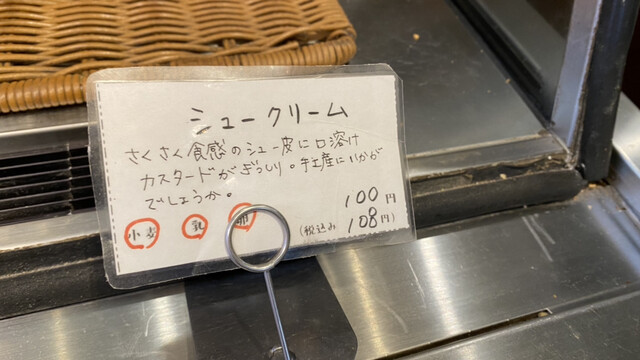 シュークリーム
さくさく食感のシュー皮に口溶け
カスタードがぎっしり。手土産にいかが
でしょうか。
100円
小麦 乳 卵 (税込み 108円)